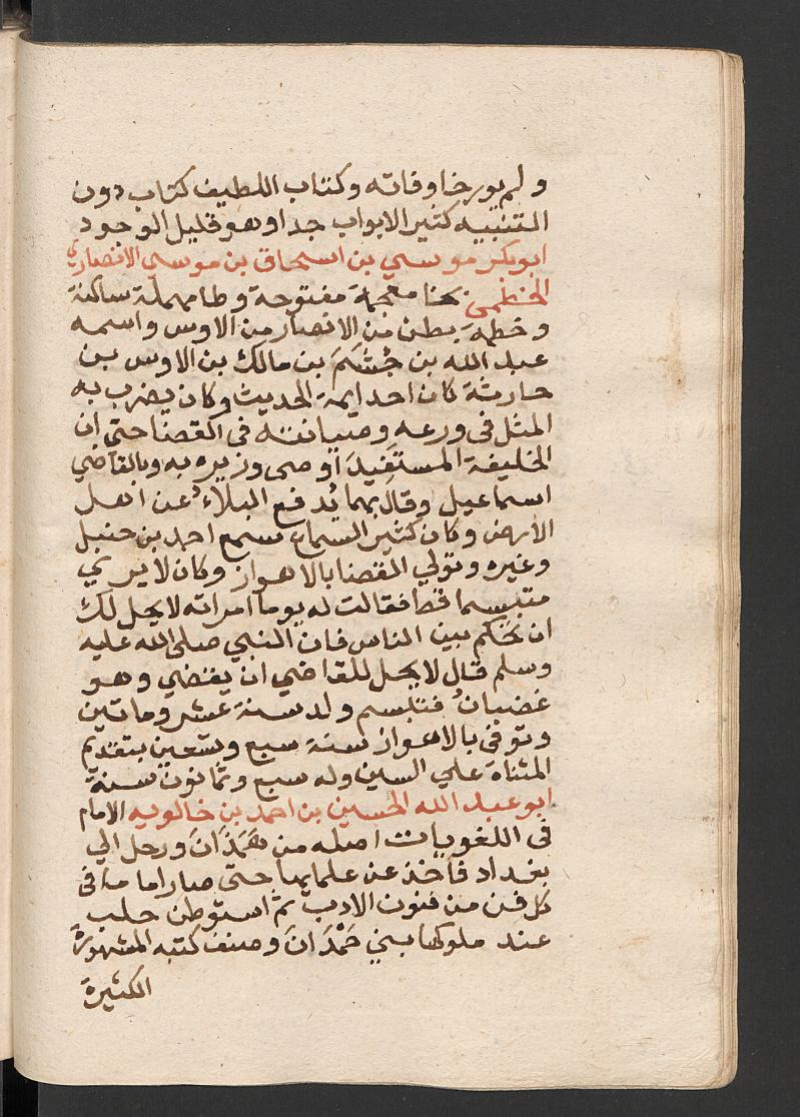 ولم يورخا وفاته وكتاب اللطيف كتاب دون
التنبيه كثير الابواب جدا وهو قليل الوجود
ابوبكر موسي بن اسحاق بن موسي الانصاري
الخطمي بخا معجمة مفتوحة وطا مهملة ساكنة
وخطمة بطن من الانصار من الاوس واسمه
عبد الله بن جُشَم بن مالك بن الاوس بن
حارثة كان احد ايمة الحديث وكان يضرب به
المثل في ورعه وصيانته في القضا حتى ان
الخليفة اوصى وزيره به وبالقاضي
اسماعيل وقال بهما يُدفع البلاءُ عن اهل
الارض وكان كثير السماع سمع احمد بن حنبل
وغيره وتولي القضا بالاهواز وكان لا يري
متبسما قط فقالت له يوما امراته لا يحل لك
ان تحكم بين الناس فان النبي صلى الله عليه
وسلم قال لا يحل للقاضي ان يقضي وهو
غضبانُ فتبسم ولد سنة عشر وماتين
وتوفي بالاهواز سنة سبع وتسعين بتقديم
المثناة علي السين وله سبع وثمانون سنة
ابو عبد الله الحسين بن احمد بن خالويه الامام
في اللغويات اصله من همَذَانَ ورحل الي
بغداد فاخذ عن علمايها حتى صار اماما في
كل فن من فنون الادب ثم استوطن حلب
عند ملوكها بني حَمْدَانَ وصنف كتبه المشهورة
الكثيرة